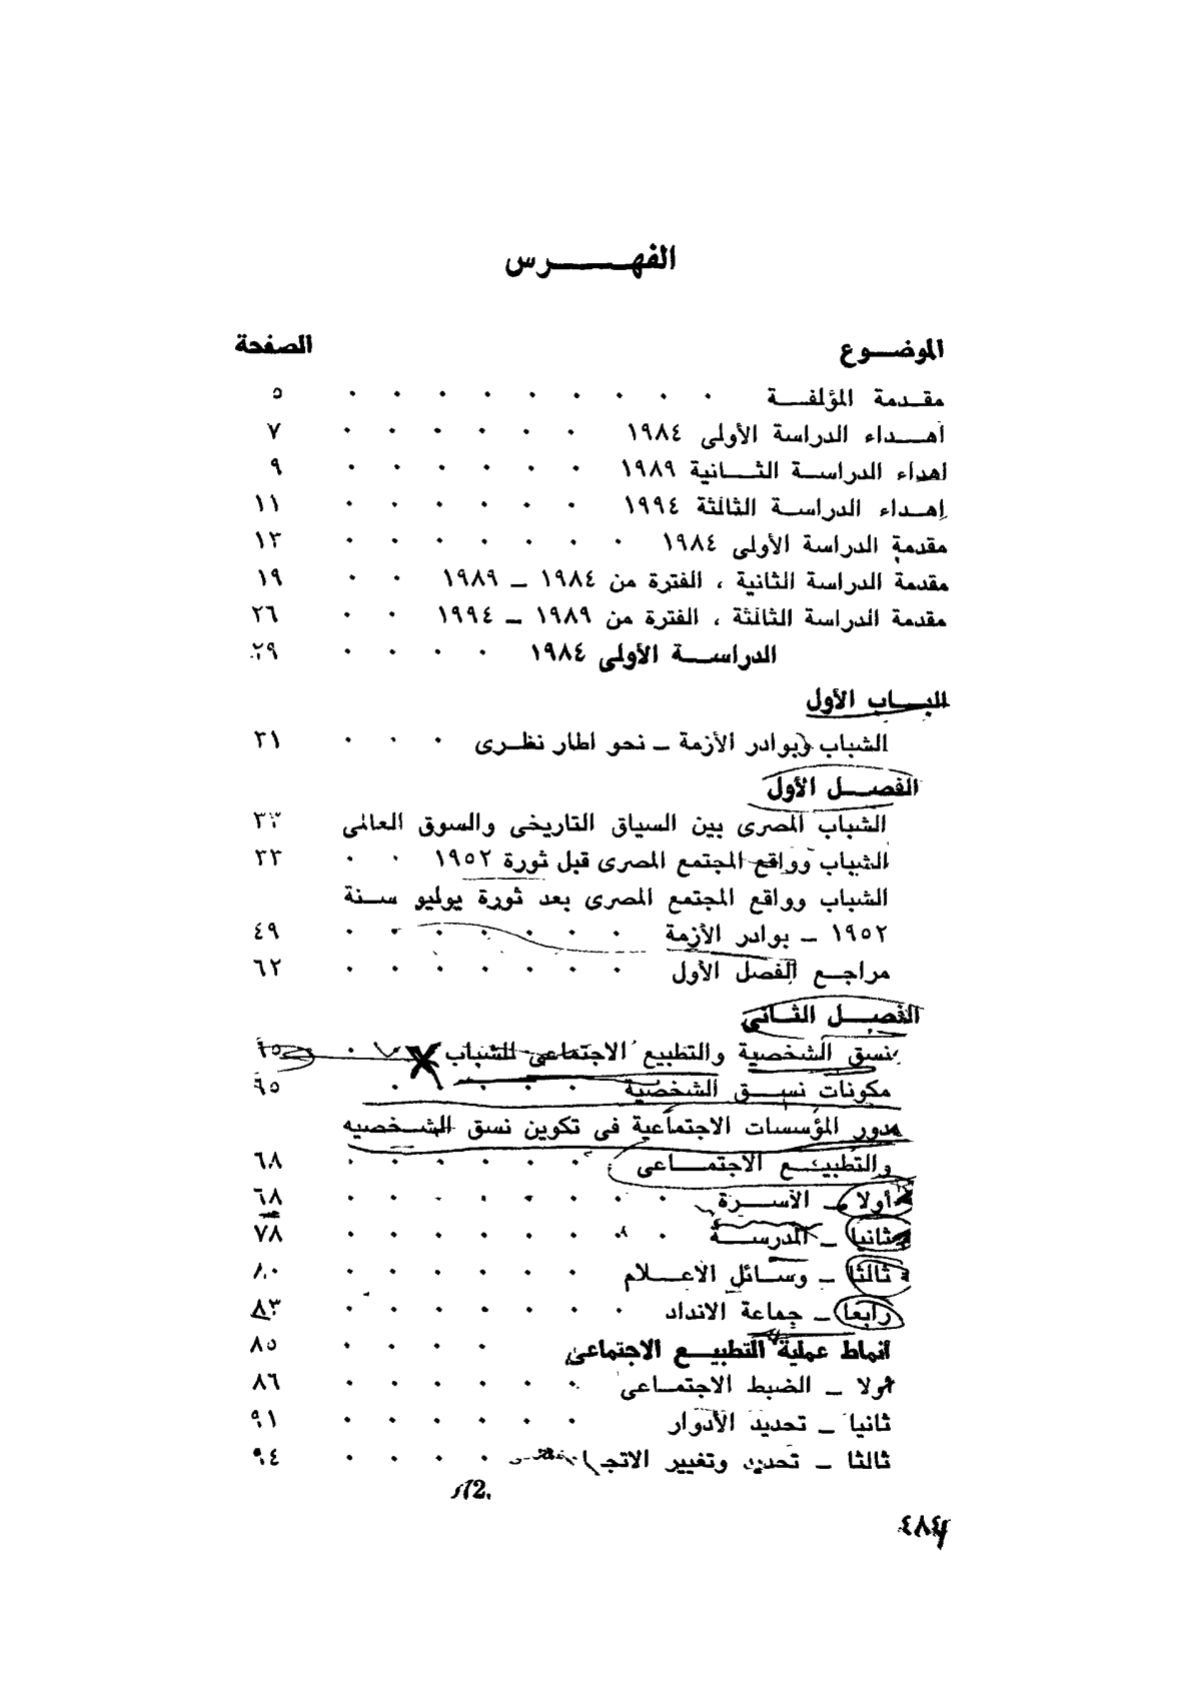 الفهـــــرس
الموضـــوع الصفحة
مقـدمة المؤلفـــة ٥
اهـــداء الدراسة الأولى ١٩٨٤ ٧
اهداء الدراســة الثـــانية ١٩٨٩ ٩
إهــداء الدراســة الثالثة ١٩٩٤ ١١
مقدمة الدراسة الأولى ١٩٨٤ ١٣
مقدمة الدراسة الثانية ، الفترة من ١٩٨٤ ــ ١٩٨٩ ١٩
مقدمة الدراسة الثالثة ، الفترة من ١٩٨٩ ــ ١٩٩٤ ٢٦
الدراســـة الأولى ١٩٨٤ ٢٩
البـــاب الأول
الشباب وبوادر الأزمة ــ نحو اطار نظـرى ٣١
الفصـــل الأول
الشباب المصرى بين السياق التاريخى والسوق العالمى ٣٣
الشباب وواقع المجتمع المصرى قبل ثورة ١٩٥٢ ٣٣
الشباب وواقع المجتمع المصرى بعد ثورة يوليو ســنة
١٩٥٢ ــ بوادر الأزمة ٤٩
مراجــع الفصل الأول ٦٢
الفصـــل الثــانى
نسق الشخصية والتطبيع الاجتماعى للشباب ٦٥
مكونات نســـق الشخصية ٦٥
دور المؤسسات الاجتماعية فى تكوين نسق الشــخصيه
والتطبيــع الاجتمـــاعى ٦٨
أولا ــ الأســـرة ٦٨
ثانيا ــ المدرســـة ٧٨
ثالثا ــ وســائل الاعـــلام ٨٠
رابعا ــ جماعة الانداد ٨٣
أنماط عملية التطبيـــع الاجتماعى ٨٥
أولا ــ الضبط الاجتمــاعى ٨٦
ثانيا ــ تحديد الأدوار ٩١
ثالثا ــ تحديد وتغيير ٩٤
٤٨٤